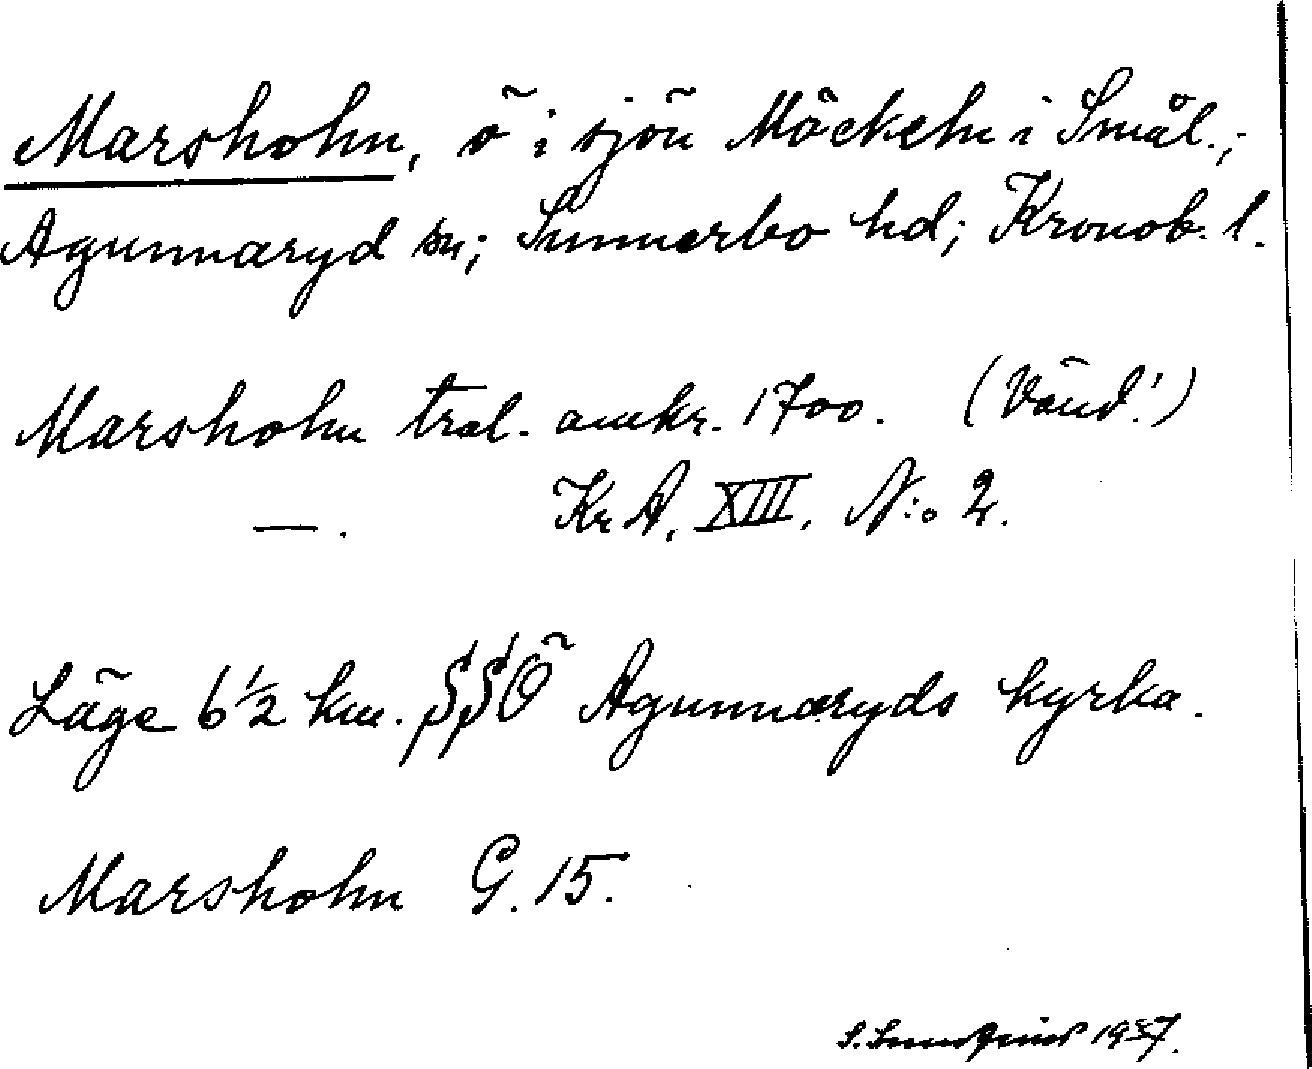 Marsholm, ö i sjön Möckeln i Smål.;
Agunnaryd sn; Sunnerbo hd; Kronob. l.
Marsholm tral. omkr. 1700. (Vänd!)
—. Kr A, XIII, N:o 2.
Läge 6½ km. SSÖ Agunnaryds kyrka.
Marsholm G. 15.
S. 1937.